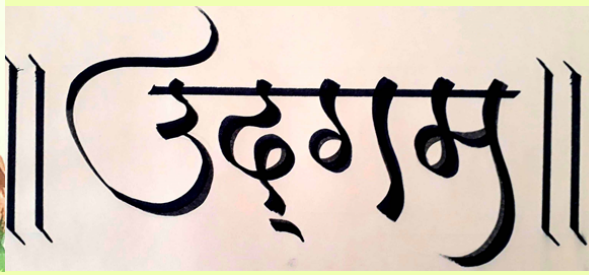 ॥ उद्‌गम ॥